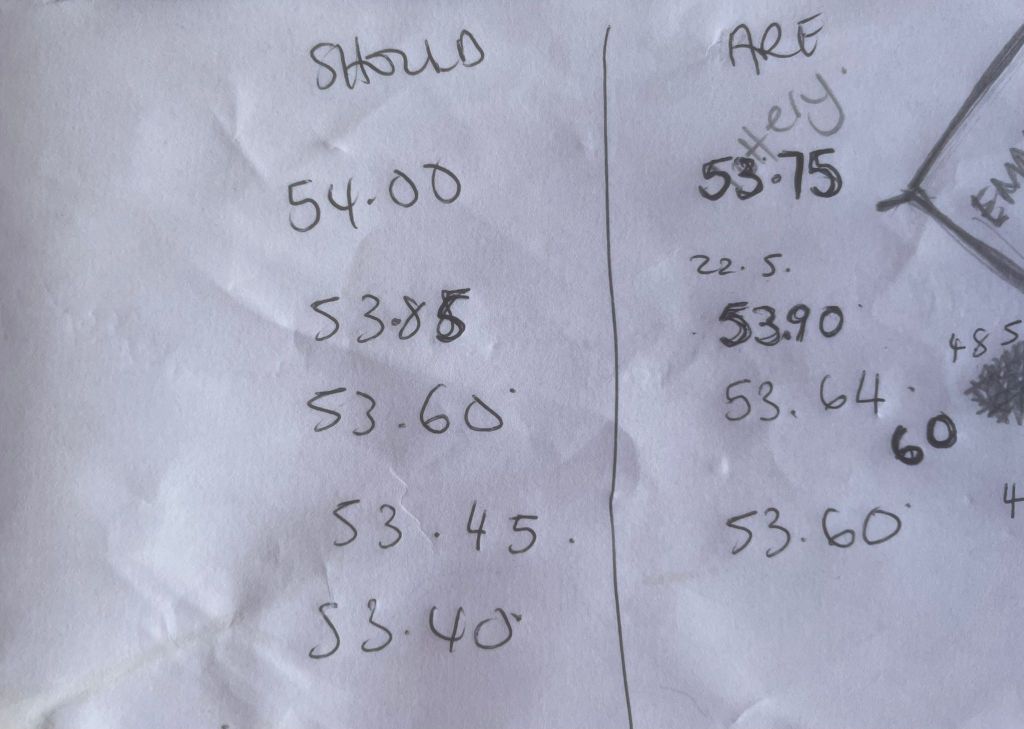 SHOULD ARE
54.00 53.75
22.5.
53.85 53.90
485
53.60 53.64
60
53.45. 53.60
4
53.40